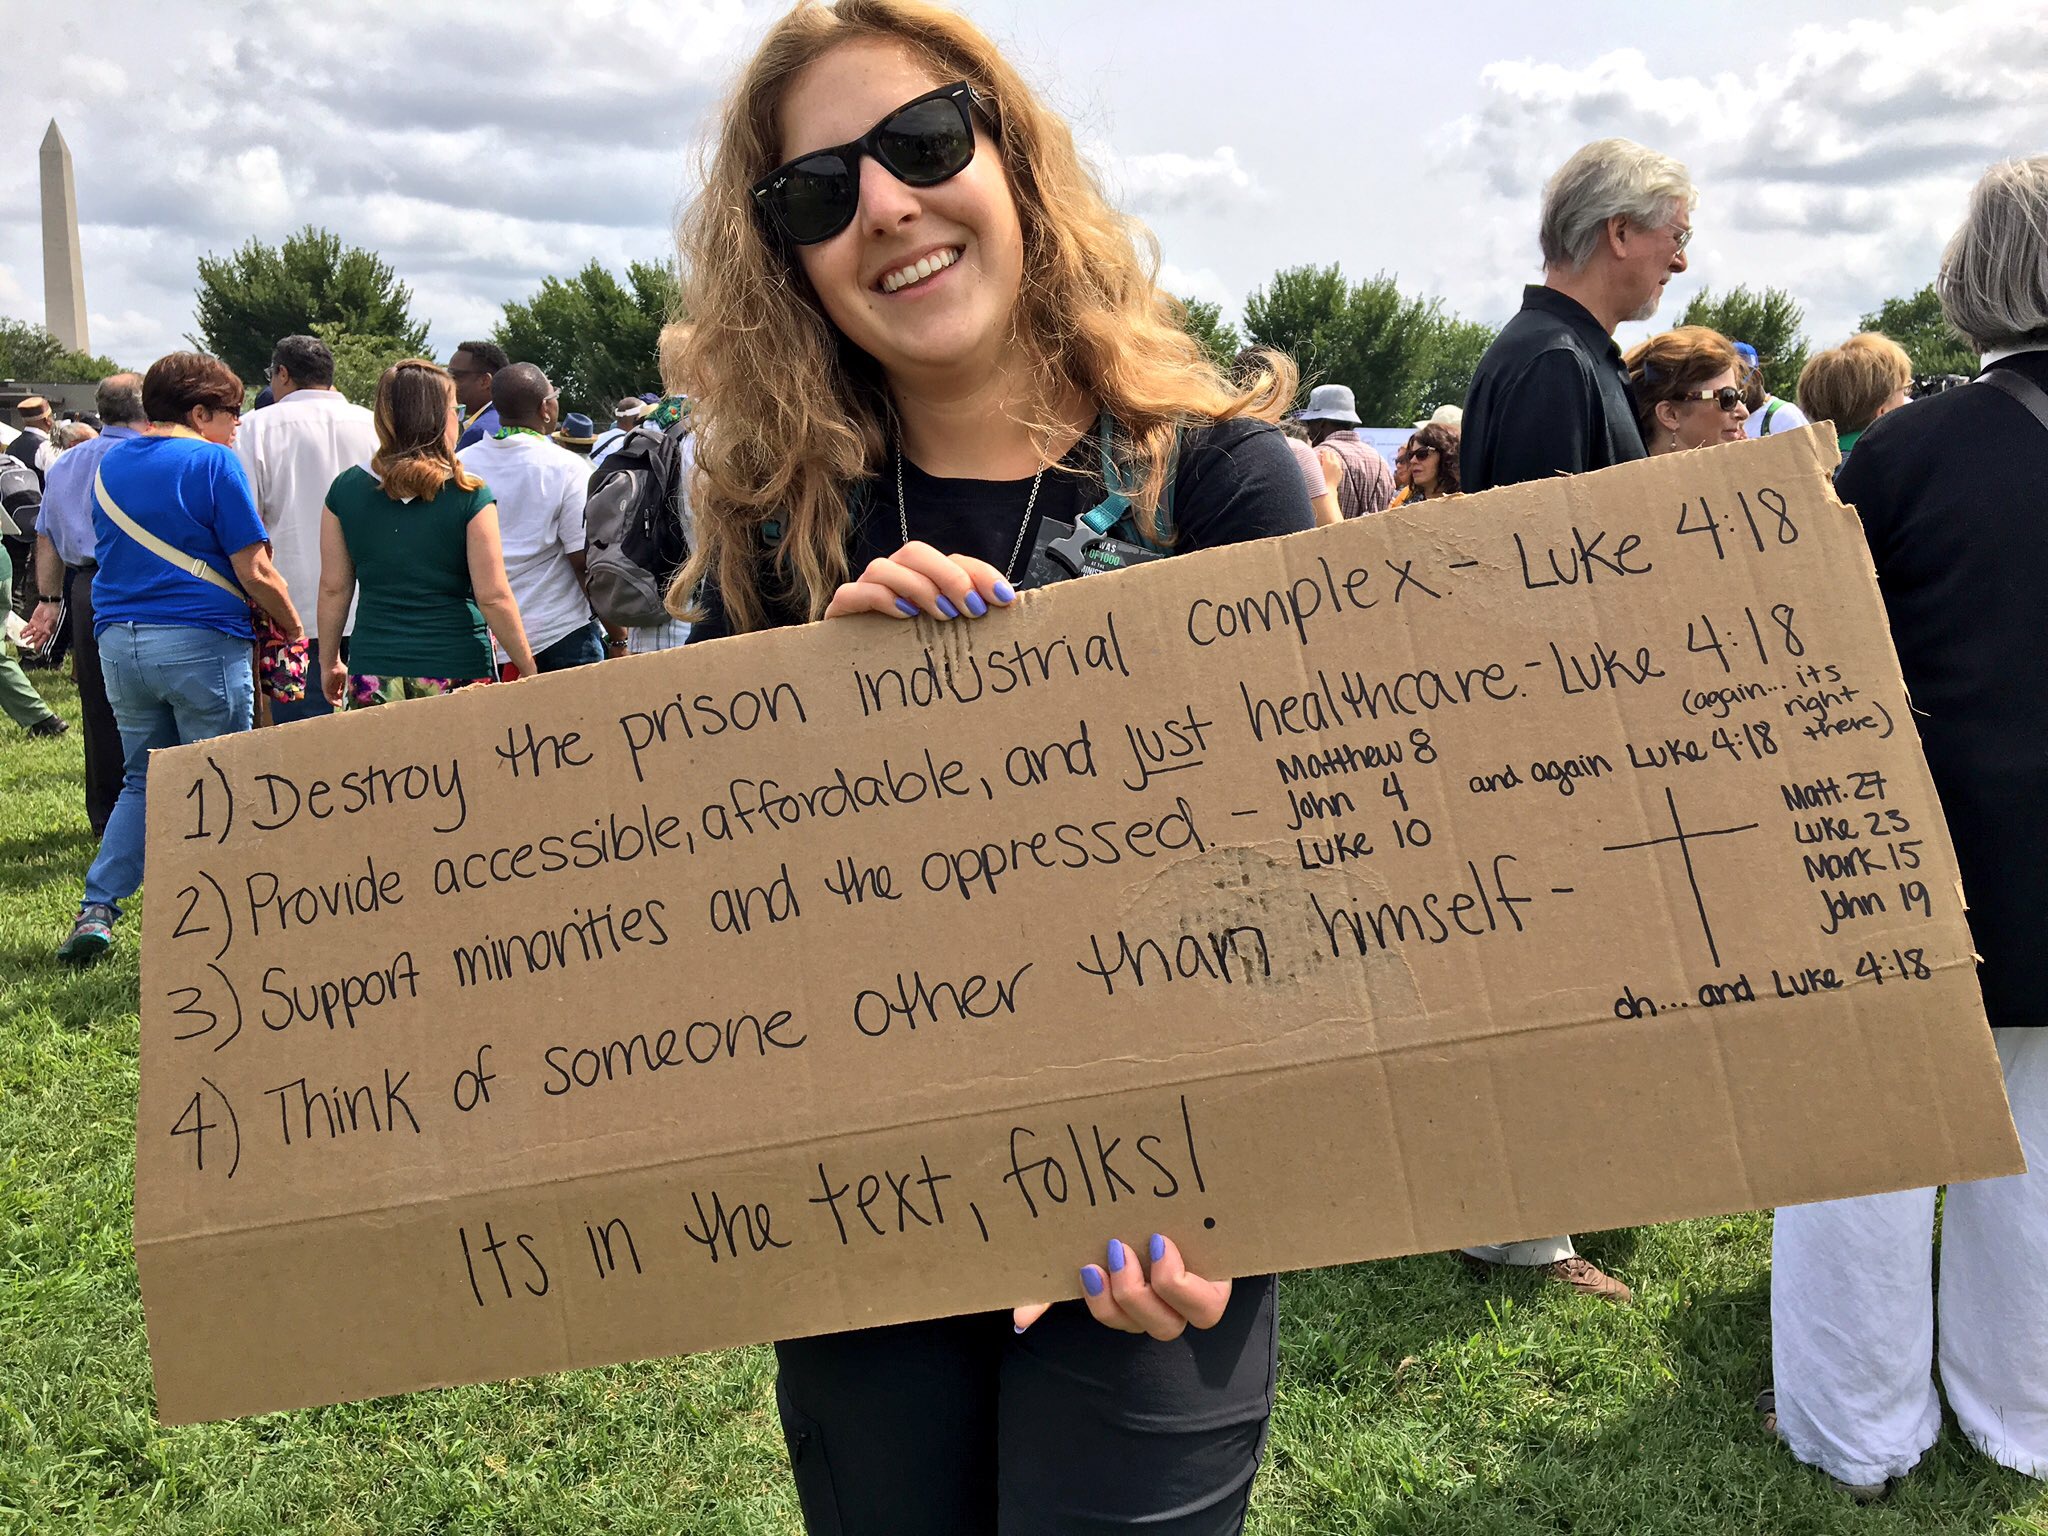 1) Destroy the prison industrial complex. - Luke 4:18
2) Provide accessible, affordable, and just healthcare. - Luke 4:18
(again... its right there)
3) Support minorities and the oppressed. - Matthew 8 John 4 Luke 10 and again Luke 4:18
4) Think of someone other than himself - Matt. 27 Luke 23 Mark 15 John 19
oh... and Luke 4:18
Its in the text, folks!
Ray-Ban
WAS
OF 1000
AT THE